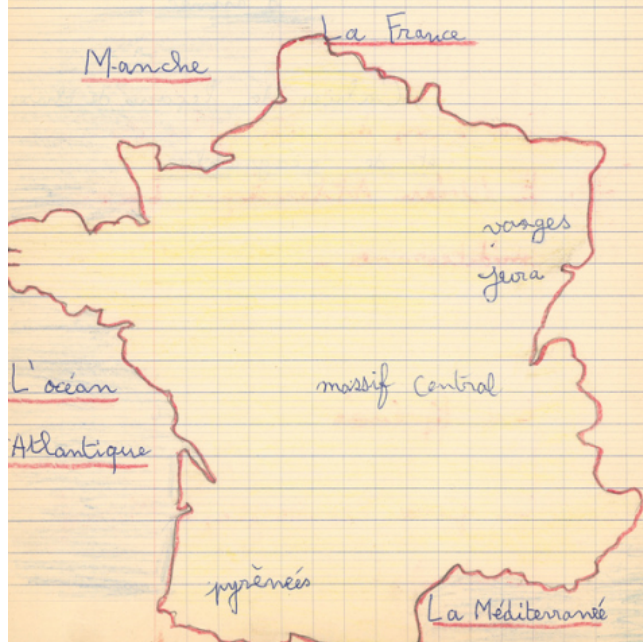 La France
Manche
vosges
jura
L'océan
massif central
Atlantique
pyrèneés
La Méditerranée